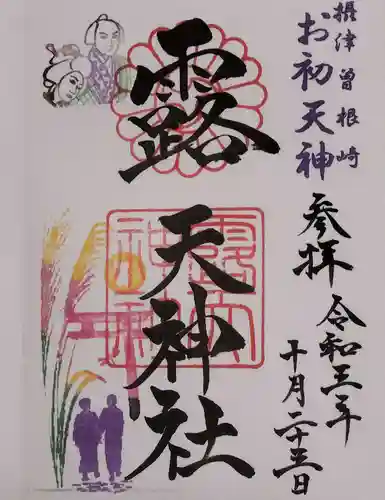 摂津 曽根崎
お初天神
参拝
令和三年
十月二十三日
露
天神社